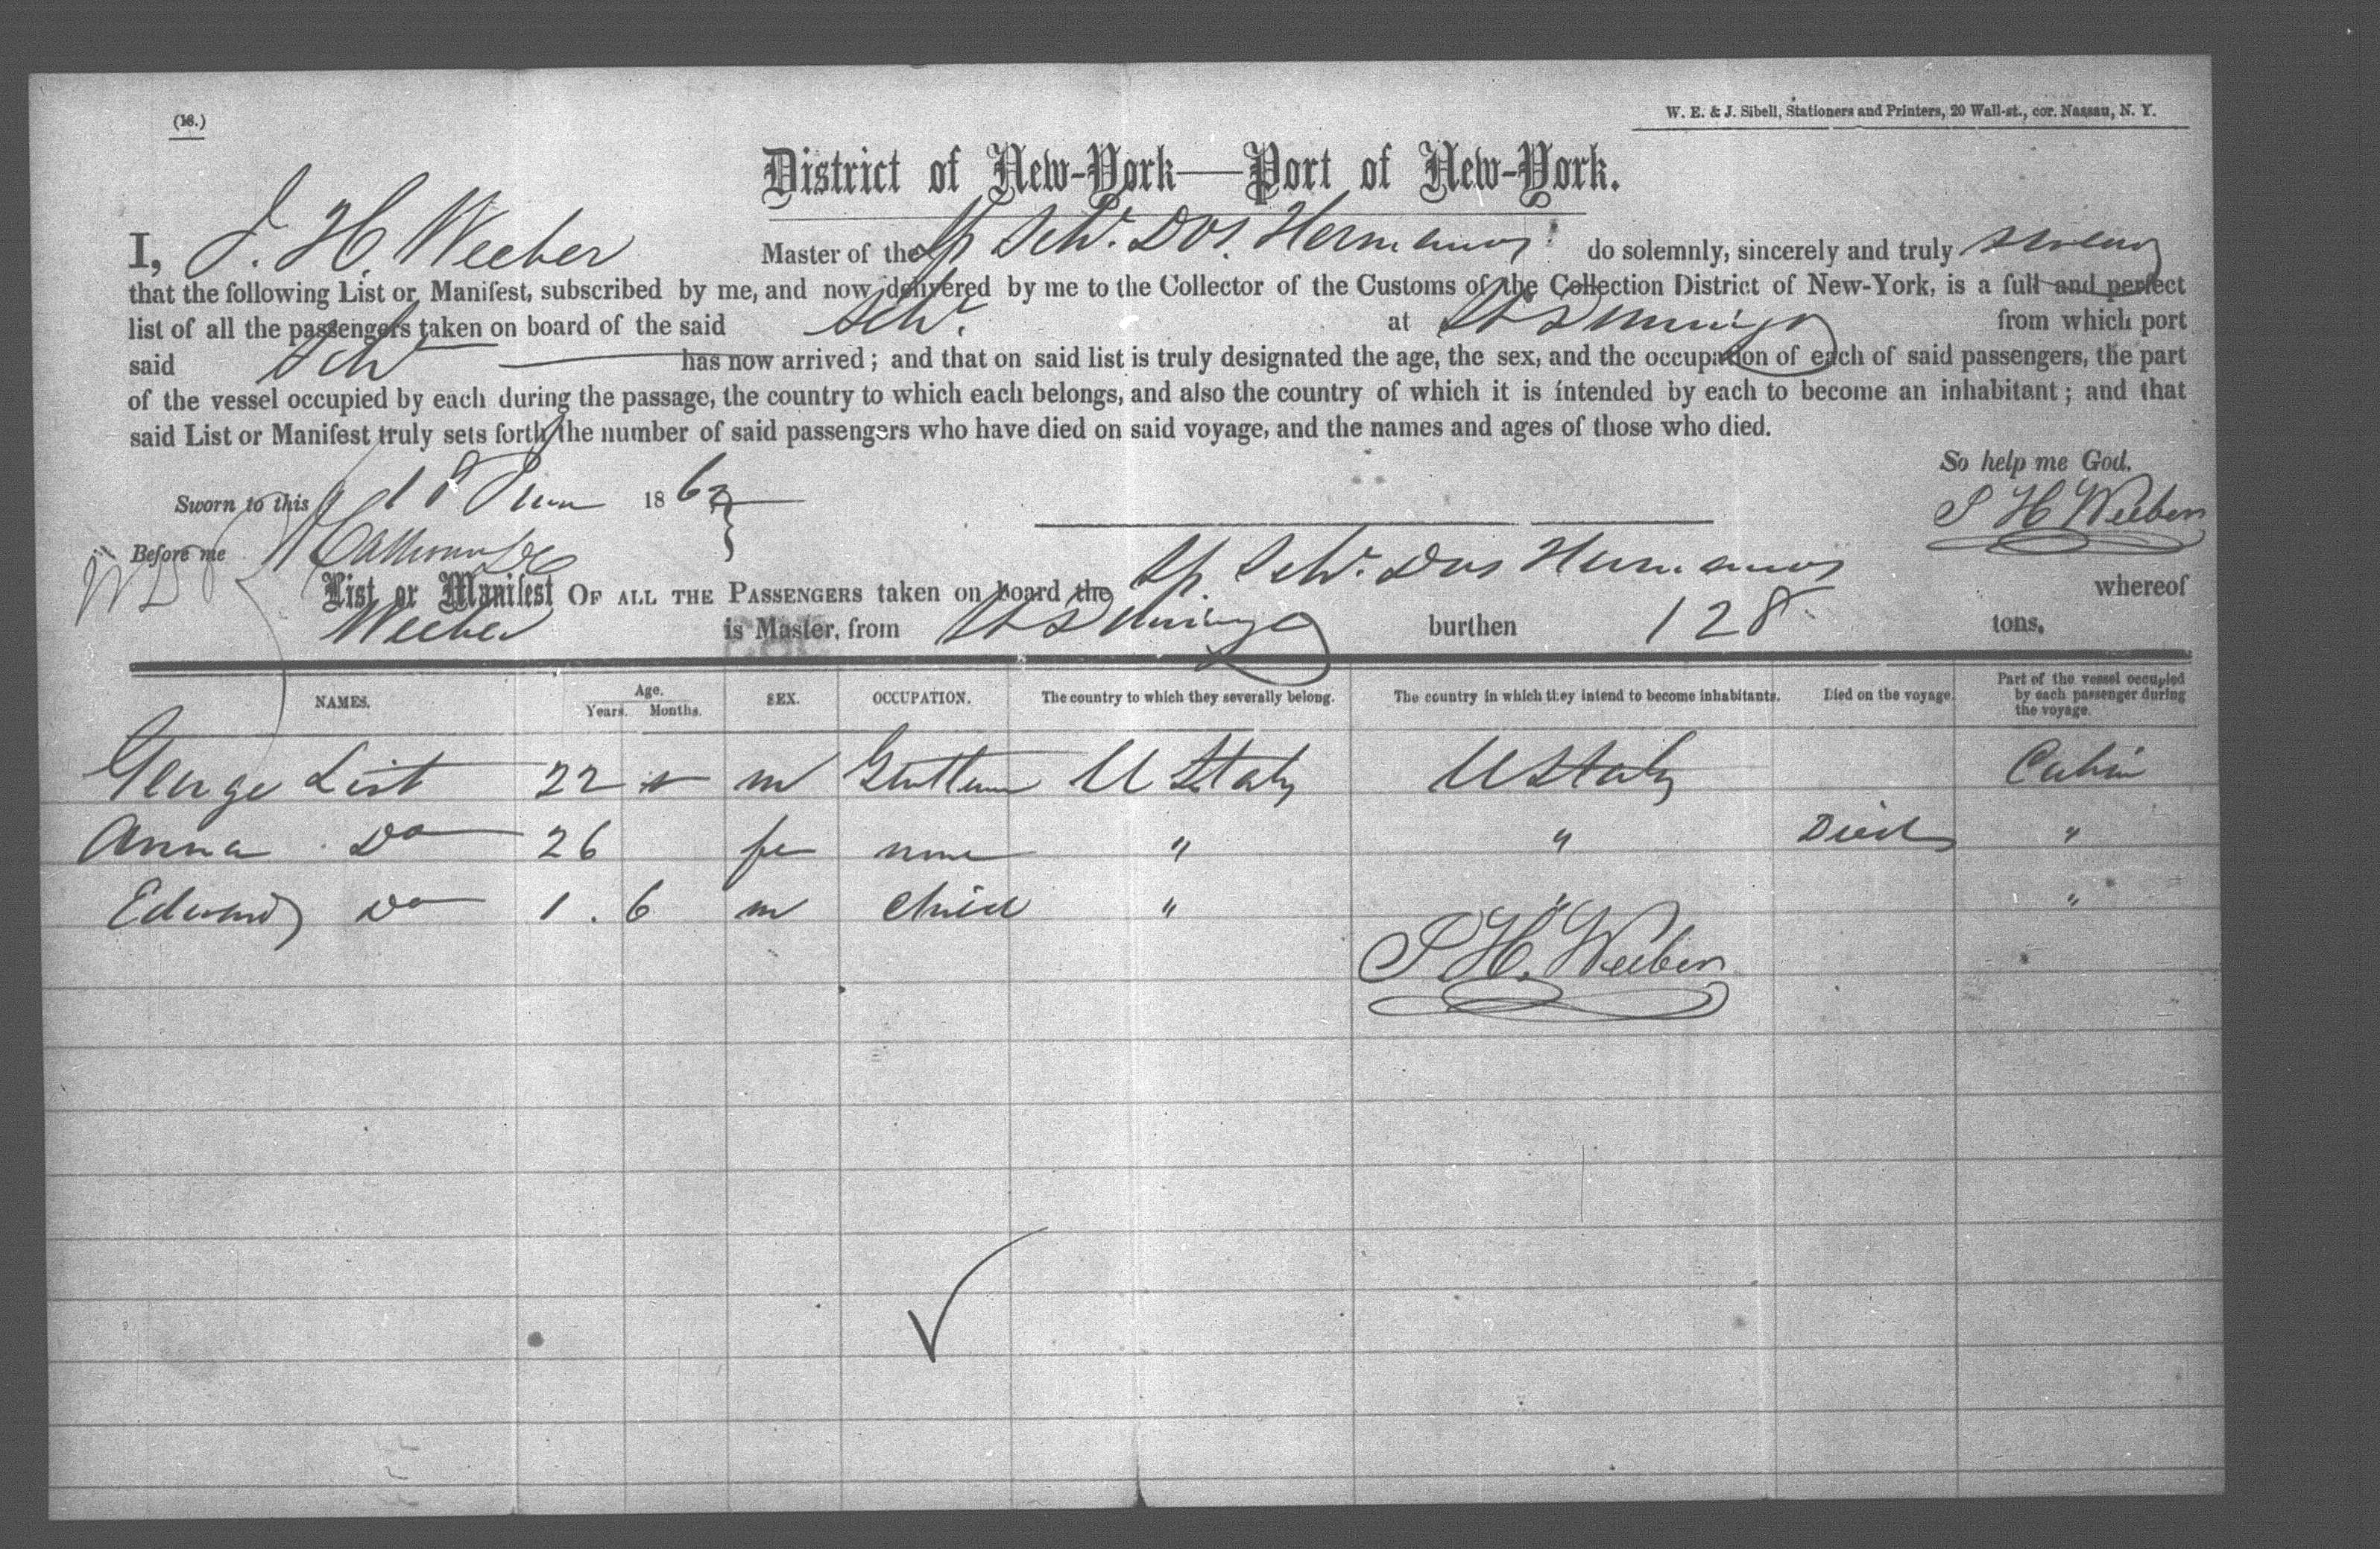 (18.)
W. E. & J. Sibell, Stationers and Printers, 20 Wall-st., cor. Nassau, N. Y.
District of New-York—Port of New-York.
I, J. H. Weeber Master of the Sp Schr. Dos Hermanos do solemnly, sincerely and truly swear
that the following List or Manifest, subscribed by me, and now delivered by me to the Collector of the Customs of the Collection District of New-York, is a full and perfect
list of all the passengers taken on board of the said Schr. at St Domingo from which port
said Schr has now arrived; and that on said list is truly designated the age, the sex, and the occupation of each of said passengers, the part
of the vessel occupied by each during the passage, the country to which each belongs, and also the country of which it is intended by each to become an inhabitant; and that
said List or Manifest truly sets forth the number of said passengers who have died on said voyage, and the names and ages of those who died.
So help me God.
Sworn to this 18 186
J H Weeber
Before me
List or Manifest OF ALL THE PASSENGERS taken on board the Sp. Schr. Dos Hermanos whereof
Weeber is Master, from St Domingo burthen 128 tons.
NAMES. Age. Years. Months. SEX. OCCUPATION. The country to which they severally belong. The country in which they intend to become inhabitants. Died on the voyage. Part of the vessel occupied by each passenger during the voyage.
George List 22 m U States U States Cabin
Anna Do 26 fe none " " Died "
Edward Do 1. 6 m child " " "
J H. Weeber